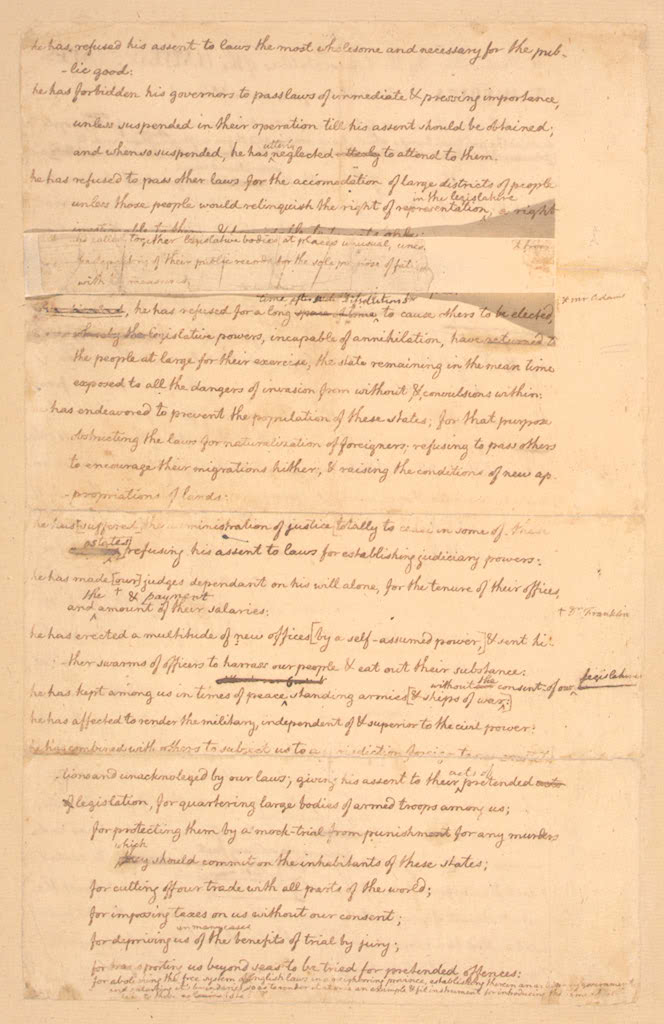 he has refused his assent to laws the most wholesome and necessary for the pub-
-lic good:
he has forbidden his governors to pass laws of immediate & pressing importance,
unless suspended in their operation till his assent should be obtained;
utterly
and when so suspended, he has neglected utterly to attend to them.
he has refused to pass other laws for the accomodation of large districts of people
in the legislature
unless those people would relinquish the right of representation, a right
inestimable to them, & formidable to tyrants only:
he has called together legislative bodies at places unusual,
of their public records for the sole purpose of
with measures
& mr Adams
time after such dissolutions
he has refused for a long space of time to cause others to be elected,
whereby the legislative powers, incapable of annihilation, have returned to
the people at large for their exercise, the state remaining in the mean time
exposed to all the dangers of invasion from without & convulsions within:
has endeavored to prevent the population of these states; for that purpose
obstructing the laws for naturalization of foreigners; refusing to pass others
to encourage their migrations hither; & raising the conditions of new ap-
-propriations of lands:
he has [suffered] the administration of justice [totally to cease in some of these
states]
refusing his assent to laws for establishing judiciary powers:
he has made [our] judges dependant on his will alone, for the tenure of their offices,
the + & payment
and amount of their salaries:
+ Dr. Franklin
he has erected a multitude of new offices [by a self-assumed power,] & sent hi-
-ther swarms of officers to harrass our people & eat out their substance:
without the consent of our legislatures
he has kept among us in times of peace standing armies [& ships of war:]
he has affected to render the military, independent of & superior to the civil power:
he has combined with others to subject us to a jurisdiction foreign to
-tions and unacknoleged by our laws; giving his assent to their pretended acts
acts of
of legislation, for quartering large bodies of armed troops among us;
for protecting them by a mock-trial from punishment for any murders
which
they should commit on the inhabitants of these states;
for cutting off our trade with all parts of the world;
for imposing taxes on us without our consent;
in many cases
for depriving us of the benefits of trial by jury;
for transporting us beyond seas to be tried for pretended offences:
for abolishing the free system of English laws in a neighboring province, establishing therein an arbitrary government
and enlarging it's boundaries so as to render it at once an example & fit instrument for introducing the same